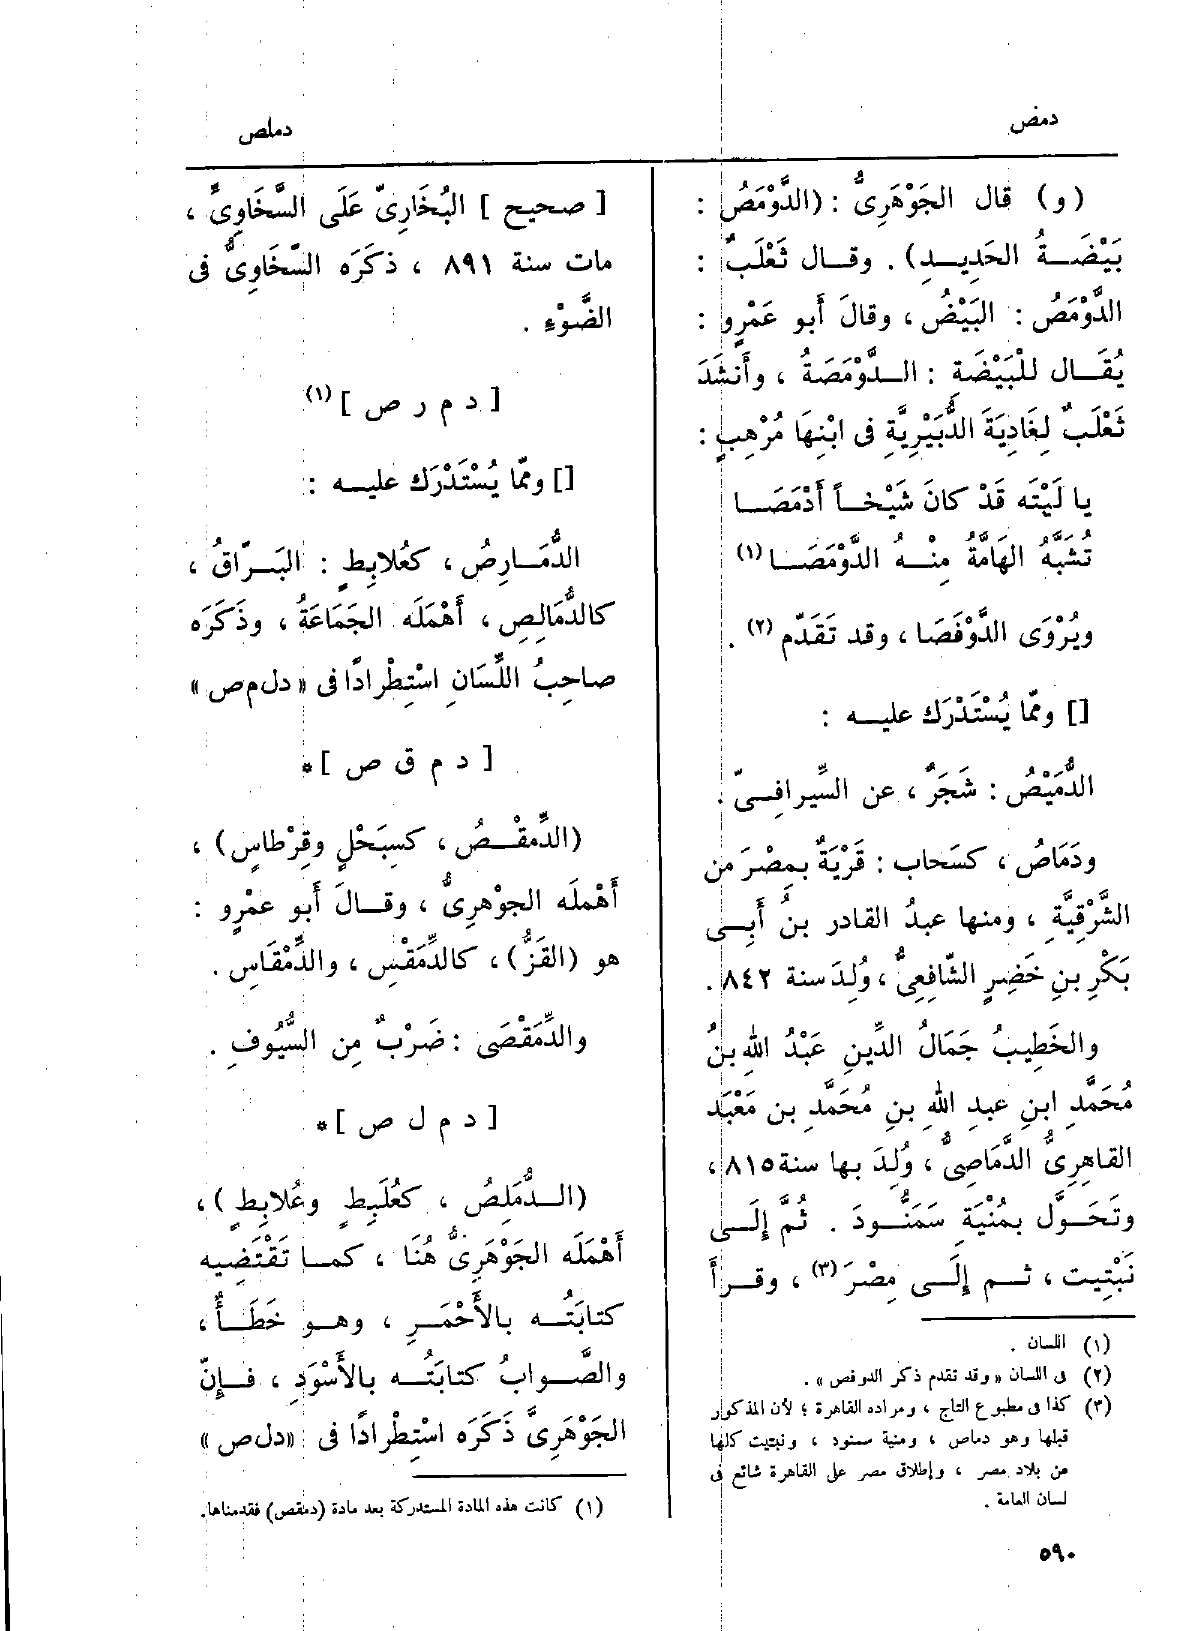 دمض
دملص
(و) قال الجَوْهَرِىُّ : (الدَّوْمَصُ :
بَيْضَةُ الحَدِيدِ) . وقال ثَعْلَبٌ :
الدَّوْمَصُ : البَيْضُ ، وقالَ أَبو عَمْرٍو :
يُقَال للْبَيْضَةِ : الدَّوْمَصَةُ ، وأَنشَدَ
ثَعْلَبٌ لِغَادِيَةَ الدُّبَيْرِيَّةِ فى ابْنِهَا مُرْهِبٍ :
يا لَيْتَه قَدْ كانَ شَيْخاً أَدْمَصَا
تُشَبَّهُ الهَامَّةُ مِنْهُ الدَّوْمَصَا (١)
ويُرْوَى الدَّوْفَصَا ، وقد تَقَدّم (٢) .
[] وممّا يُسْتَدْرَك عليه :
الدُّمَيْصُ : شَجَرٌ ، عن السِّيرافِىّ .
ودَمَاصُ ، كسَحاب : قَرْيَةٌ بمِصْرَ من
الشَّرْقِيَّةِ ، ومنها عبدُ القادر بنُ أَبِى
بَكْرِ بنِ خَضِرٍ الشّافِعِىُّ ، وُلِدَ سنة ٨٤٢ .
والخَطِيبُ جَمَالُ الدِّينِ عَبْدُ اللهِ بنُ
مُحَمَّدِ ابنِ عبدِ اللهِ بنِ مُحَمَّدِ بن مَعْبَد
القاهِرِىُّ الدَّمَاصِىُّ ، وُلِدَ بها سنة ٨١٥ ،
وتَحَوَّل بمُنْيَةِ سَمَنُّودَ . ثُمَّ إِلَى
نَبْتِيت ، ثم إِلَى مِصْرَ (٣) ، وقرأَ
(١) اللسان .
(٢) فى اللسان «وقد تقدم ذكر الدوفص» .
(٣) كذا فى مطبوع التاج ، ومراده القاهرة ؛ لأن المذكور
قبلها وهو دماص ، ومنية سمنود ، ونبتيت كلها
من بلاد مصر ، وإطلاق مصر على القاهرة شائع فى
لسان العامة .
[ صحيح ] البُخَارِىّ عَلَى السَّخَاوِىِّ ،
مات سنة ٨٩١ ، ذكَرَه السّخَاوِىُّ فى
الضَّوْءِ .
[ د م ر ص ] (١)
[] وممّا يُسْتَدْرَك عليه :
الدُّمَارِصُ ، كعُلابِطٍ : البَرّاقُ ،
كالدُّمَالِصِ ، أَهْمَلَه الجَمَاعَةُ ، وذَكَرَه
صاحِبُ اللِّسَانِ اسْتِطْرادًا فى «دلمص»
[ د م ق ص ] *
(الدِّمَقْصُ ، كسِبَحْلٍ وقِرْطاسٍ) ،
أَهْملَه الجوْهَرِىُّ ، وقالَ أَبو عمْرٍو :
هو (القَزُّ) ، كالدِّمَقْسِ ، والدِّمْقَاسِ .
والدِّمَقْصَى : ضَرْبٌ مِن السُّيُوفِ .
[ د م ل ص ] *
(الدُّمَلِصُ ، كعُلَبِطٍ وعُلابِطٍ) ،
أَهْمَلَه الجَوْهَرِىُّ هُنَا ، كما تَقْتَضِيه
كتابَتُه بالأَحْمَرِ ، وهو خَطَأٌ ،
والصَّوابُ كتابَتُه بالأَسْوَدِ ، فإِنّ
الجَوْهَرِىَّ ذَكَرَه اسْتِطْرادًا فى «دلص»
(١) كانت هذه المادة المستدركة بعد مادة (دمقص) فقدمناها .
٥٩٠